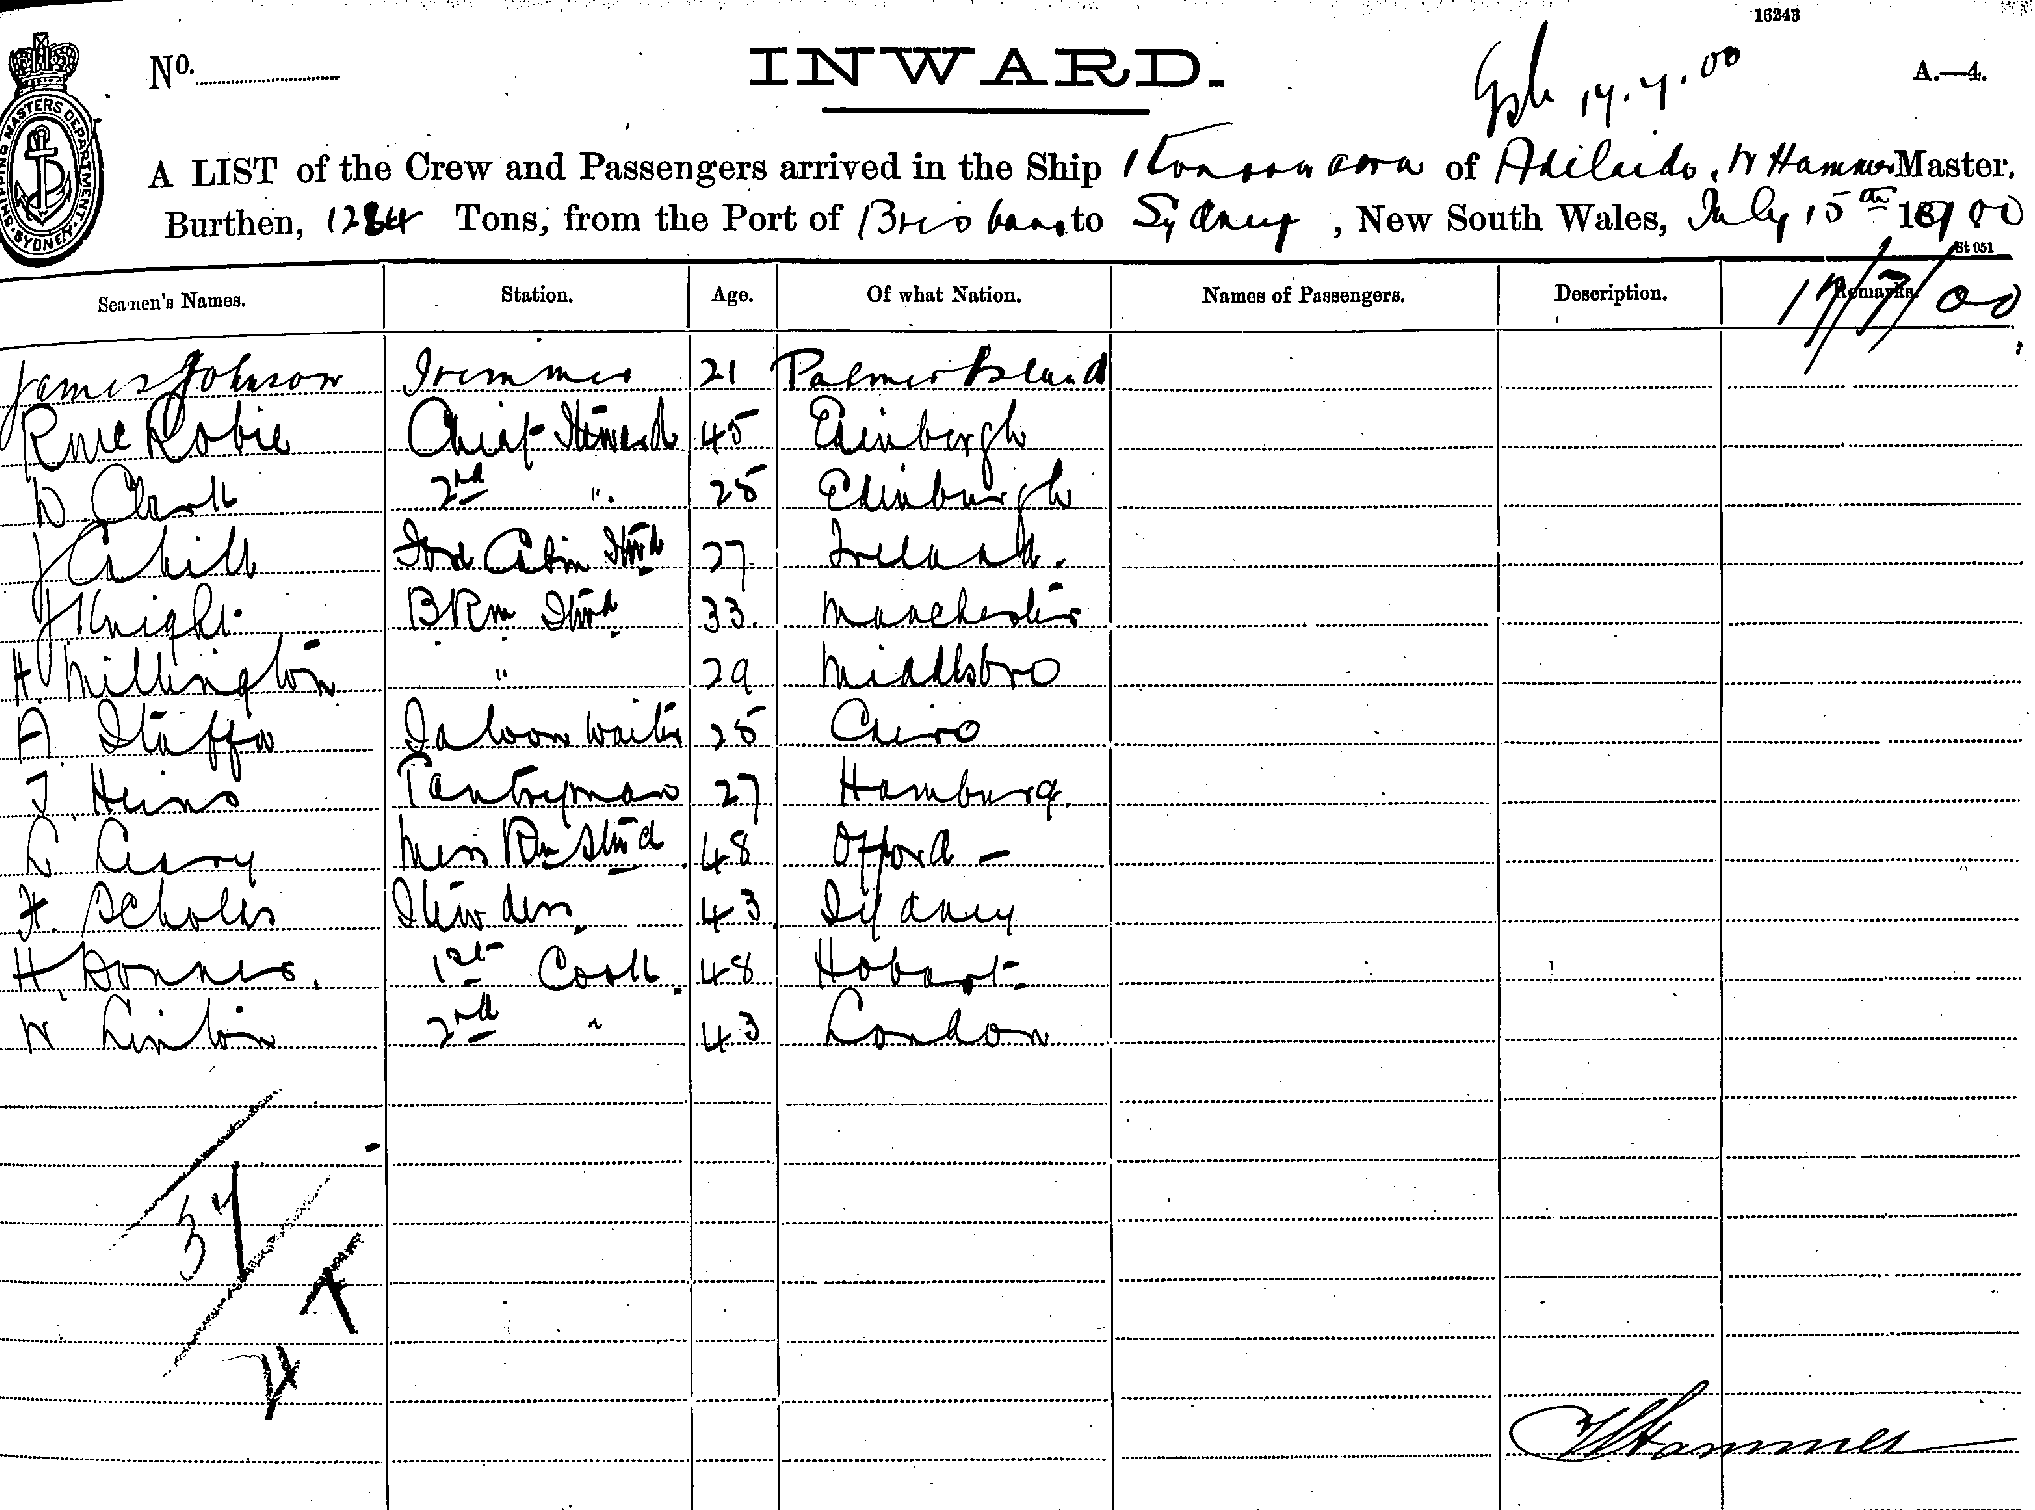 16243
No.
INWARD.
17.7.00
A.—4.
A LIST of the Crew and Passengers arrived in the Ship Konoowarra of Adilaide, W Hammer Master,
Burthen, 1284 Tons, from the Port of Brisbane to Sydney, New South Wales, July 15th 1900
SHIPPING MASTERS DEPARTMENT. SYDNEY.
St 051
Seamen's Names. Station. Age. Of what Nation. Names of Passengers. Description. Remarks.
17/7/00
James Johnson Trimmer 21 Palmer Island
R McRobie Chief Steward 45 Edinbergh
D Clark 2nd " 25 Edinburgh
J Cahill Ford Cabin Stwd 27 Ireland.
J Knight B Rm Stwd 33 Manchester
H. Millington " 29 Middlsbro
A Staffa Saloon Waiter 25 Cairo
J. Heins Pantryman 27 Hamburg.
L Leary Mess Rm Stwd 48 Offord —
H. Scholes Stewdess 43 Sydney
H. Bonner. 1st Cook 48 Hobart
W Linton 2nd " 43 London
37
W Hammer